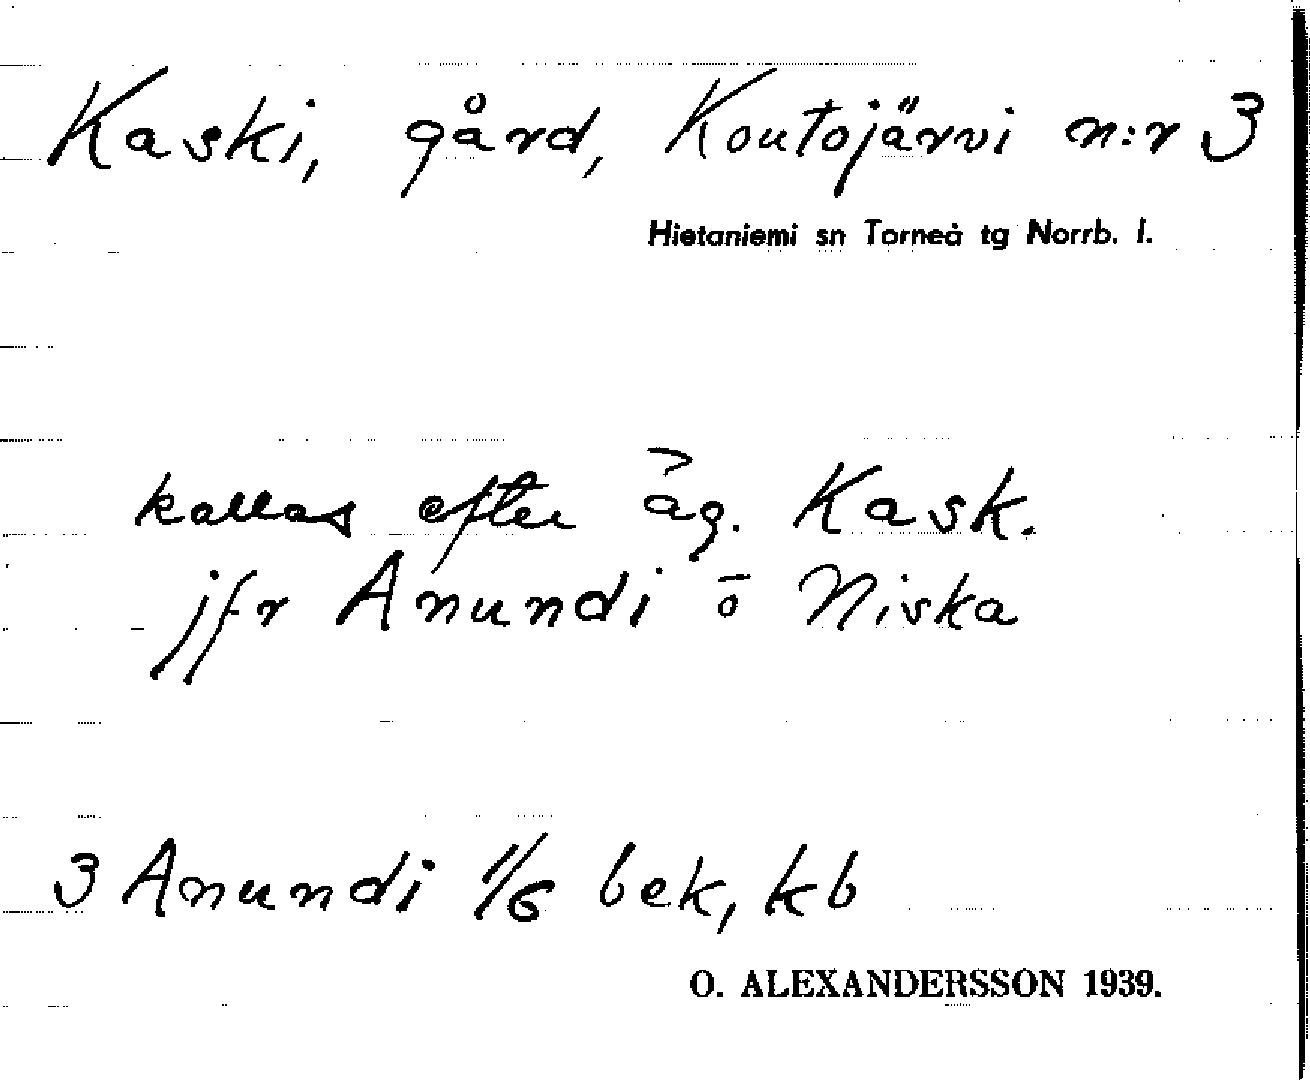 Kaski, gård, Koutojärvi n:r 3
Hietaniemi sn Torneå tg Norrb. l.
kallas efter äg. Kask.
jfr Anundi o Niska
3 Anundi 1/6 bek, kb
O. ALEXANDERSSON 1939.